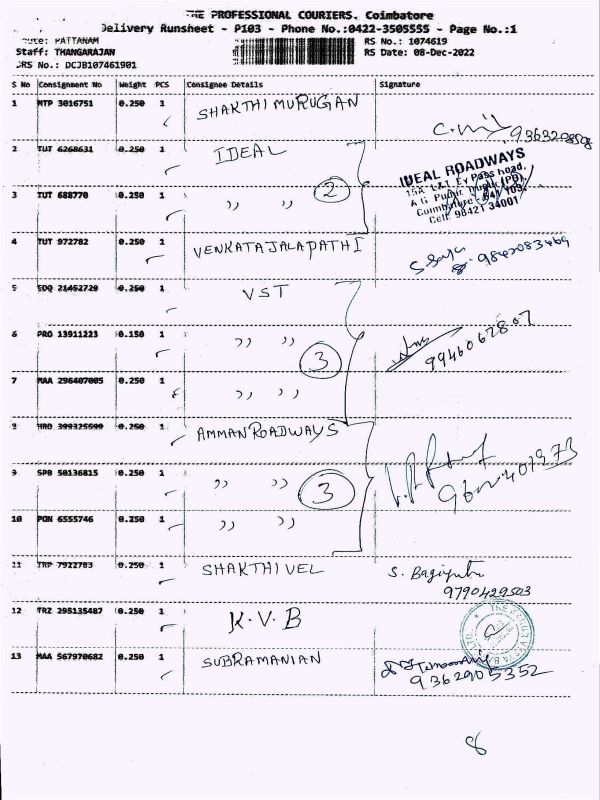 THE PROFESSIONAL COURIERS. Coimbatore
Delivery Runsheet - P103 - Phone No.:0422-3505555 - Page No.:1
Route: PATTANAM RS No.: 1074619
Staff: THANGARAJAN RS Date: 08-Dec-2022
DRS No.: DCJB107461901
S No Consignment No Weight PCS Consignee Details Signature
1 MTP 3016751 0.250 1 SHAKTHI MURUGAN
2 TUT 6268631 0.250 1 IDEAL
IDEAL ROADWAYS
2
3 TUT 688770 0.250 1 ,, ,,
Cell: 98421 34001
4 TUT 972782 0.250 1 VENKATAJALAPATHI
9842083469
5 EDQ 21452729 0.250 1 VST
6 PRO 13911223 0.150 1 ,, ,,
3
7 MAA 296407005 0.250 1 ,, ,,
8 HRO 399325599 0.250 1 AMMAN ROADWAYS
9 SPB 50136815 0.250 1 ,, ,,
3
10 PON 6555746 0.250 1 ,, ,,
11 TRP 7922783 0.250 1 SHAKTHIVEL
9790429503
12 TRZ 295135487 0.250 1 K.V.B
13 MAA 567970682 0.250 1 SUBRAMANIAN
9362905352
8